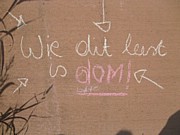 Wie dit leest
is DOM!